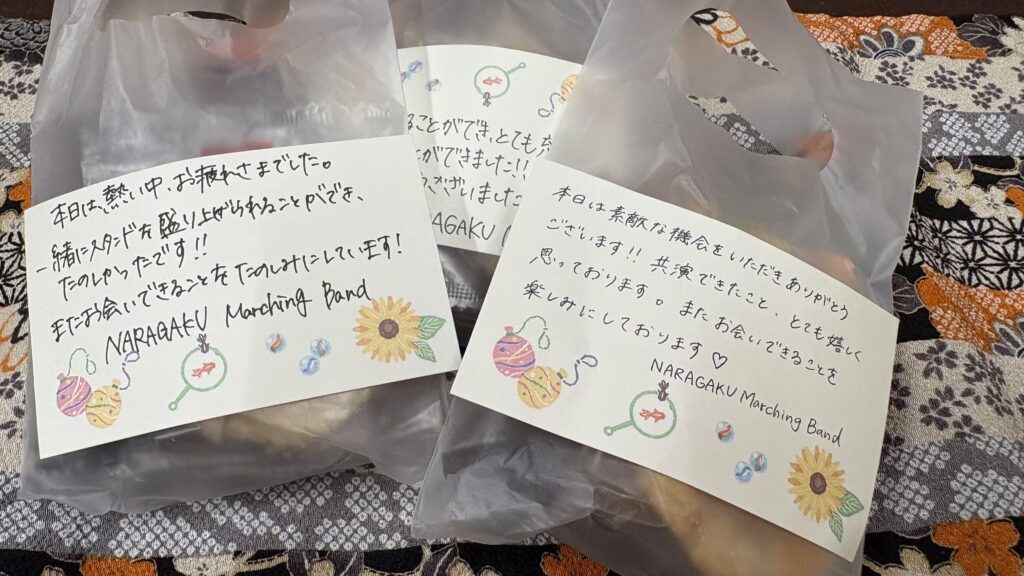 本日は、熱い中、お疲れさまでした。
一緒にスタンドを盛り上げられることができ、
たのしかったです!!
またお会いできることをたのしみにしています!
NARAGAKU Marching Band
ることができ、とても
ができました!!
ございました
AGAKU
本日は素敵な機会をいただきありがとう
ございます!! 共演できたこと、とても嬉しく
思っております。またお会いできることを
楽しみにしております♡
NARAGAKU Marching Band